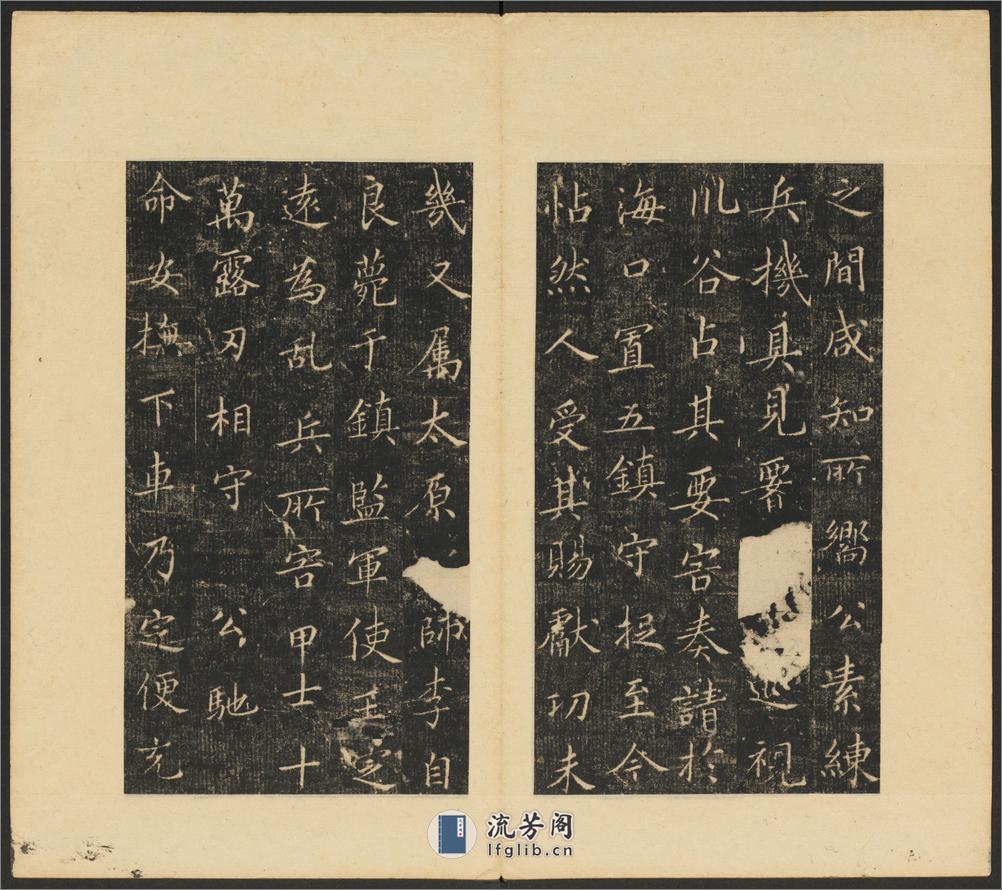 之間咸知所嚮公素練
兵機真見署巡視
川谷占其要害奏請於
海口置五鎮守捉至今
怗然人受其賜獻功未
幾又属太原師李自
良薨于鎮監軍使王定
遠為乱兵所害甲士十
萬露刃相守公馳
命安撫下車乃定便充
流芳阁
lfglib.cn